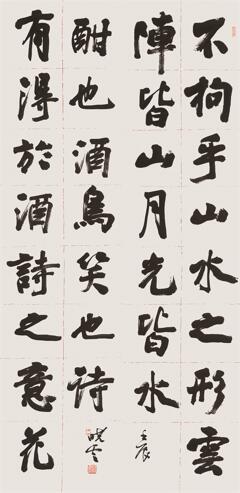 不拘乎山水之形雲
陣皆山月光皆水
有得於酒詩之意花
酣也酒鳥笑也詩
壬辰
晓云